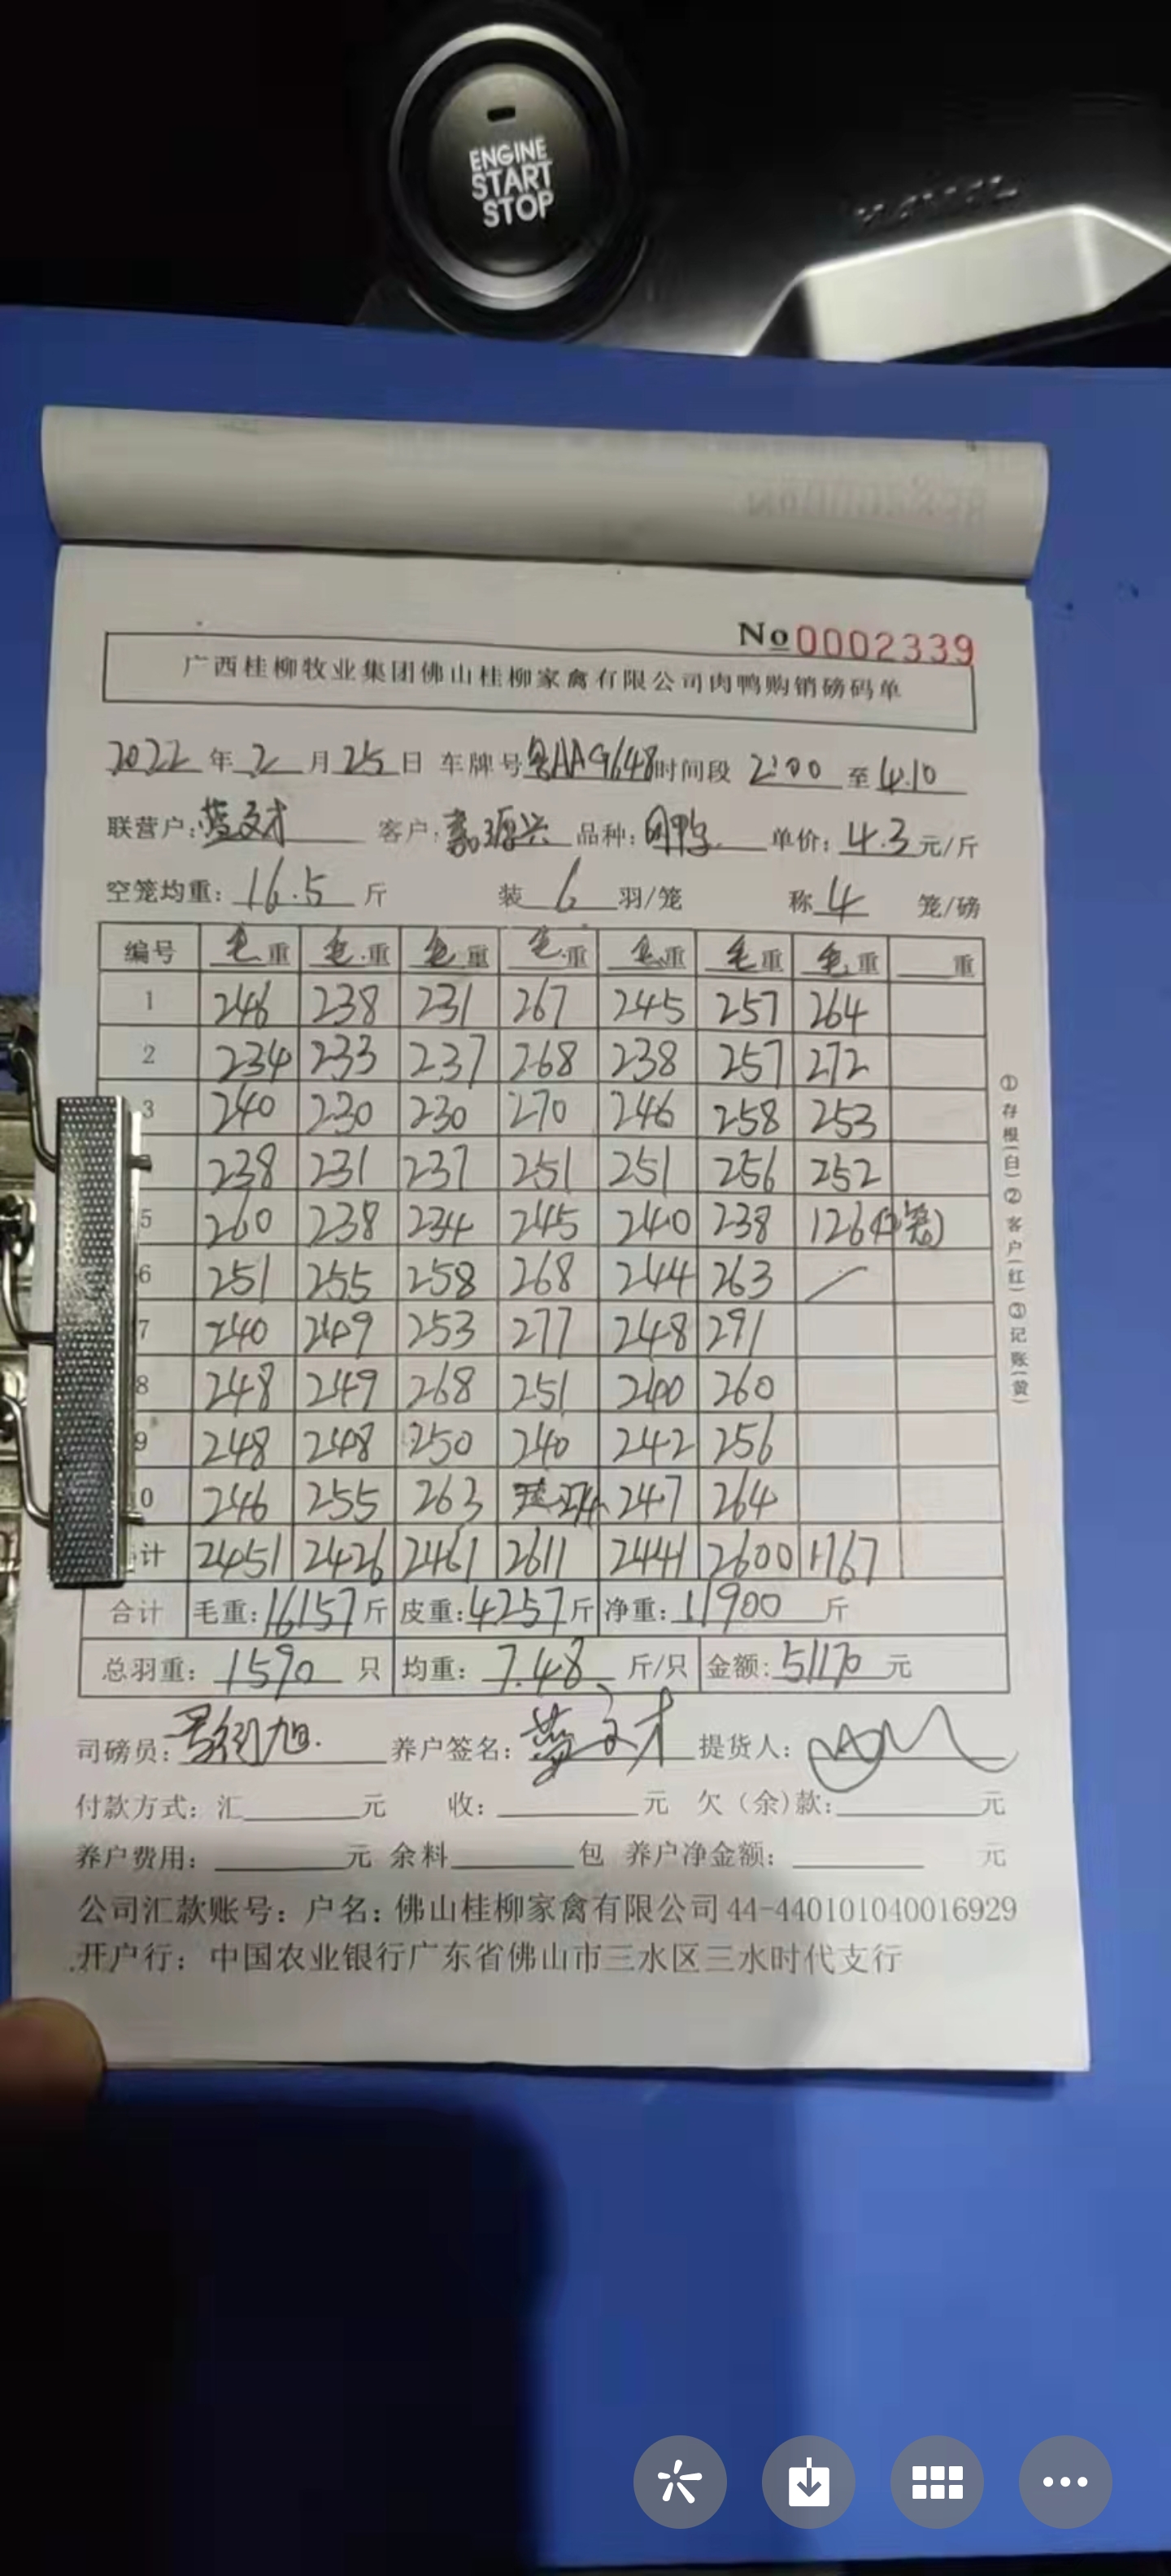 ENGINE
START
STOP
No 0002339
广西桂柳牧业集团佛山桂柳家禽有限公司肉鸭购销磅码单
2022年2月25日 车牌号粤AAG648时间段 2:00至4.10
联营户:蓝文才 客户: 品种:肉鸭 单价:4.3元/斤
空笼均重:16.5斤 装6羽/笼 称4笼/磅
编号 毛重 毛重 毛重 毛重 毛重 毛重 毛重 重
1 246 238 231 267 245 257 264
2 234 233 237 268 238 257 272
3 240 230 230 270 246 258 253
238 231 237 251 251 256 252
5 260 238 234 245 240 238 126(2笼)
6 251 255 258 268 244 263
7 240 249 253 277 248 291
8 248 249 268 251 240 260
9 248 248 250 240 242 256
0 246 255 263 274 247 264
计 2451 2426 2461 2611 2441 2600 1167
合计 毛重:16157斤 皮重:4257斤 净重:11900斤
总羽重:1590只 均重:7.48斤/只 金额:51170元
司磅员: 养户签名:蓝文才 提货人:
付款方式:汇 元 收: 元 欠(余)款: 元
养户费用: 元 余料 包 养户净金额: 元
公司汇款账号:户名:佛山桂柳家禽有限公司44-440101040016929
开户行:中国农业银行广东省佛山市三水区三水时代支行
①存根(白)②客户(红)③记账(黄)